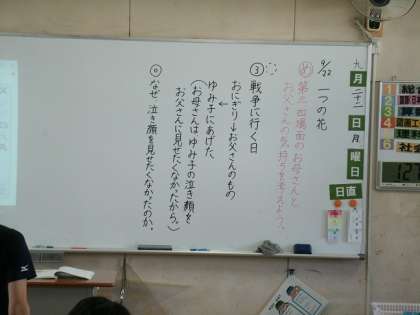 九月二十二日月曜日
日直
9/22 一つの花
め 第三場面のお母さんと
お父さんの気持ちを考えよう。
③ 戦争に行く日
おにぎり→お父さんのもの
ゆみ子にあげた
(お母さんはゆみ子の泣き顔を
お父さんに見せたくなかったから。)
◎ なぜ、泣き顔を見せたくなかったのか。
1
2
3
4
5
6